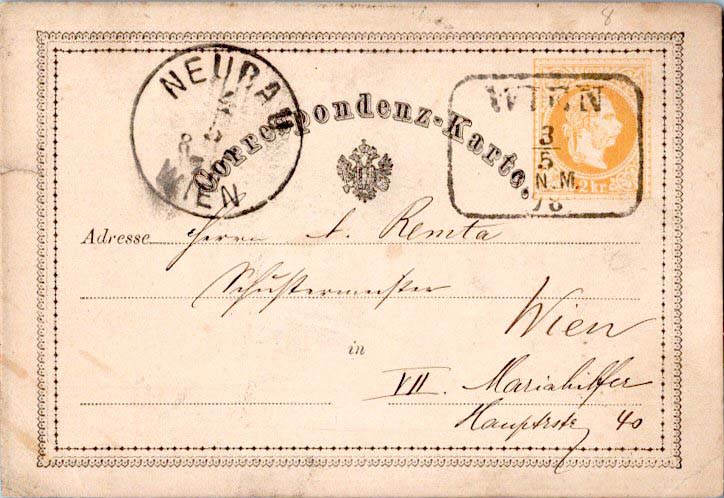 8
NEUBAU
WIEN
Correspondenz-Karte.
WIEN
3/5
N.M.
78
2 kr
Adresse Herrn A. Remta
Schustermeister
Wien
in
VII. Mariahilfer
Hauptstr 40